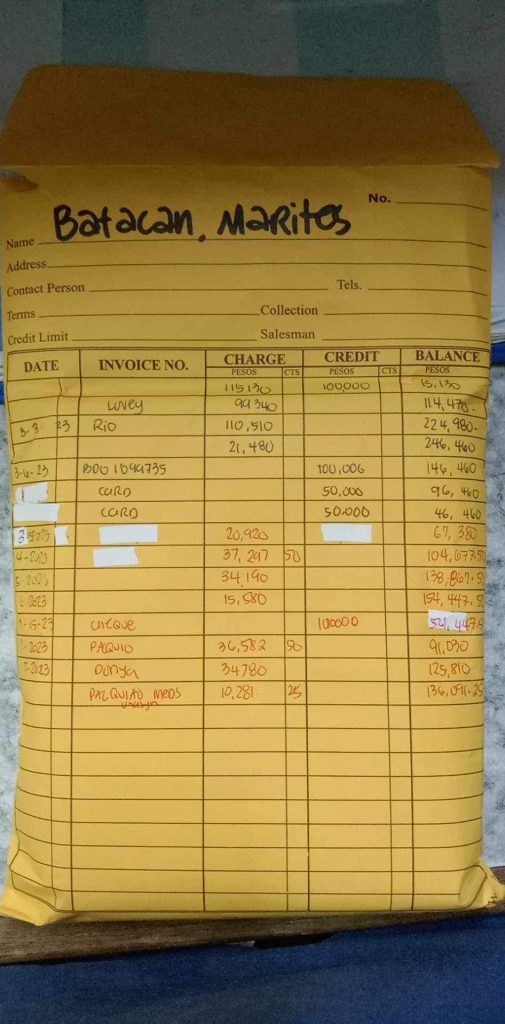 No.
Name Batacan, Marites
Address
Contact Person Tels.
Terms Collection
Credit Limit Salesman
DATE INVOICE NO. CHARGE CREDIT BALANCE
PESOS CTS PESOS CTS PESOS
115130 100,000 15,130
99340 114,470-
3-3 23 Rio 110,510 224,980-
21,480 246,460
3-6-23 100,000 146,460
CARD 50,000 96,460
CARD 50,000 46,460
20,920 67,380
37,297 50 104,677.50
34,190 138,867.5
2023 15,580 154,447.5
-15-23 cheque 100000
2023 PAQUIO 36,582 50 91,030
2023 Dunya 34780 125,810
MEDS 10,281 25 136,091.25